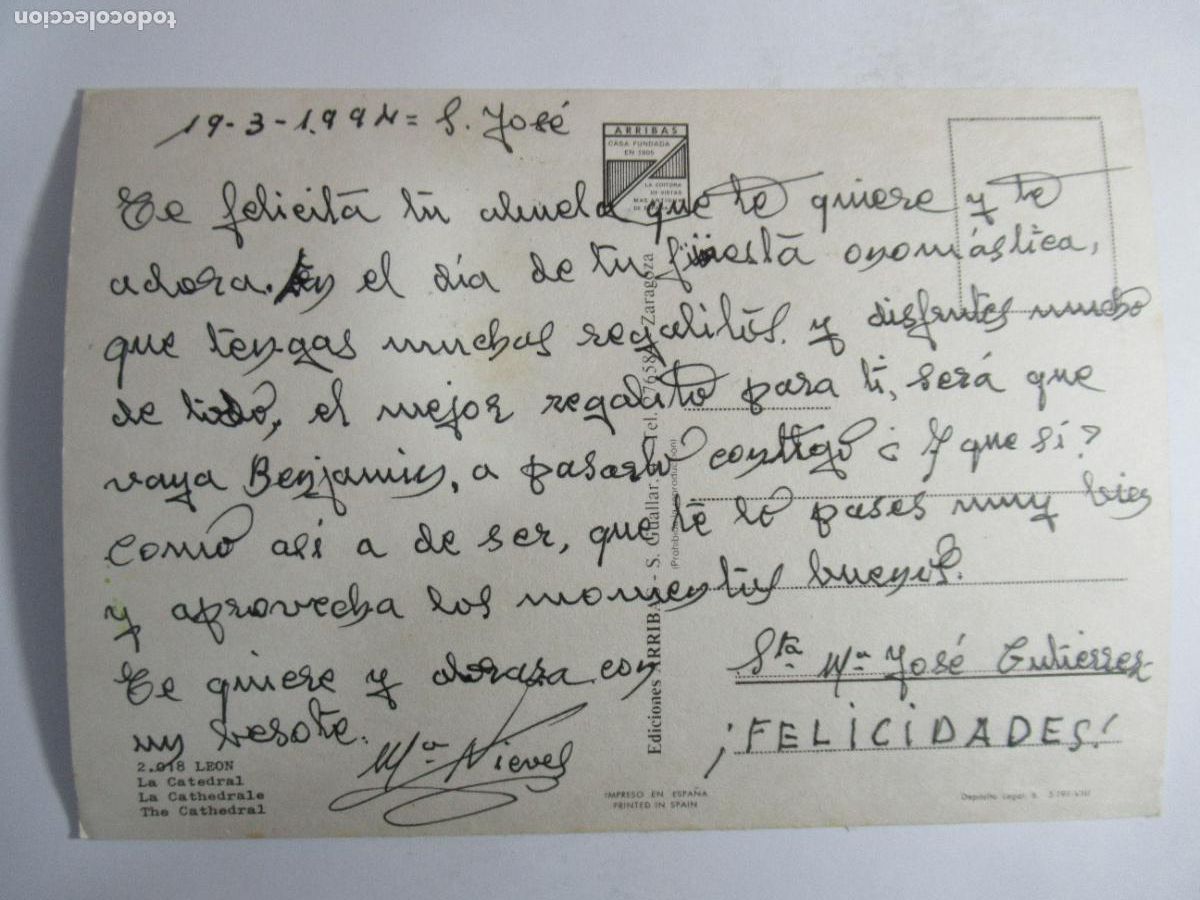 todocoleccion
19-3-1.994= S. José
ARRIBAS
CASA FUNDADA
EN 1905
LA EDITORA
DE VISTAS
MAS
DE
Te felicita tu abuela que te quiere y te
adora. En el día de tu fiesta onomástica,
que tengas muchos regalitos. y disfrutes mucho
de todo, el mejor regalito para ti, será que
vaya Benjamin, a pasarlo contigo ¿ Y que sí?
como asi a de ser, que te lo pases muy bien
y aprovecha los momentos buenos.
Te quiere y abraza con
un besote.
Mª Nieves
Sta Mª José Gutierrez
¡FELICIDADES!
2.018 LEON
La Catedral
La Cathedrale
The Cathedral
Ediciones ARRIBAS - S. Guallar. Tel. Zaragoza
(Prohibida la reproducción)
IMPRESO EN ESPAÑA
PRINTED IN SPAIN
Depósito Legal: B.